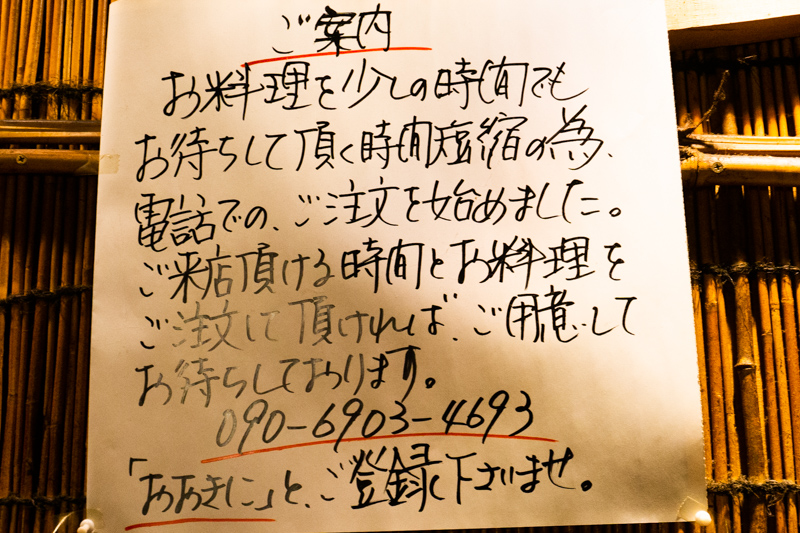 ご案内
お料理を少しの時間でも
お待ちして頂く時間短縮の為、
電話での、ご注文を始めました。
ご来店頂ける時間とお料理を
ご注文して頂ければ、ご用意して
お待ちしております。
090-6903-4693
「おおきに」と、ご登録下さいませ。